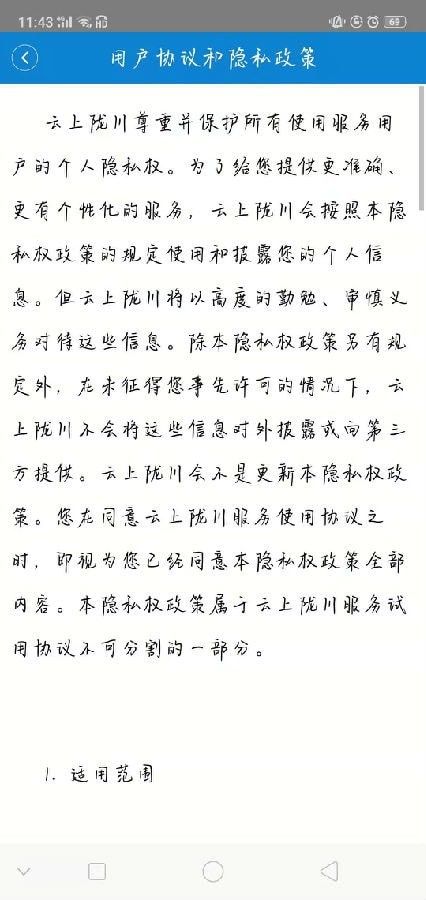 11:43
69
用户协议和隐私政策
云上陇川尊重并保护所有使用服务用
户的个人隐私权。为了给您提供更准确、
更有个性化的服务，云上陇川会按照本隐
私权政策的规定使用和披露您的个人信
息。但云上陇川将以高度的勤勉、审慎义
务对待这些信息。除本隐私权政策另有规
定外，在未征得您事先许可的情况下，云
上陇川不会将这些信息对外披露或向第三
方提供。云上陇川会不是更新本隐私权政
策。您在同意云上陇川服务使用协议之
时，即视为您已经同意本隐私权政策全部
内容。本隐私权政策属于云上陇川服务试
用协议不可分割的一部分。
1. 适用范围